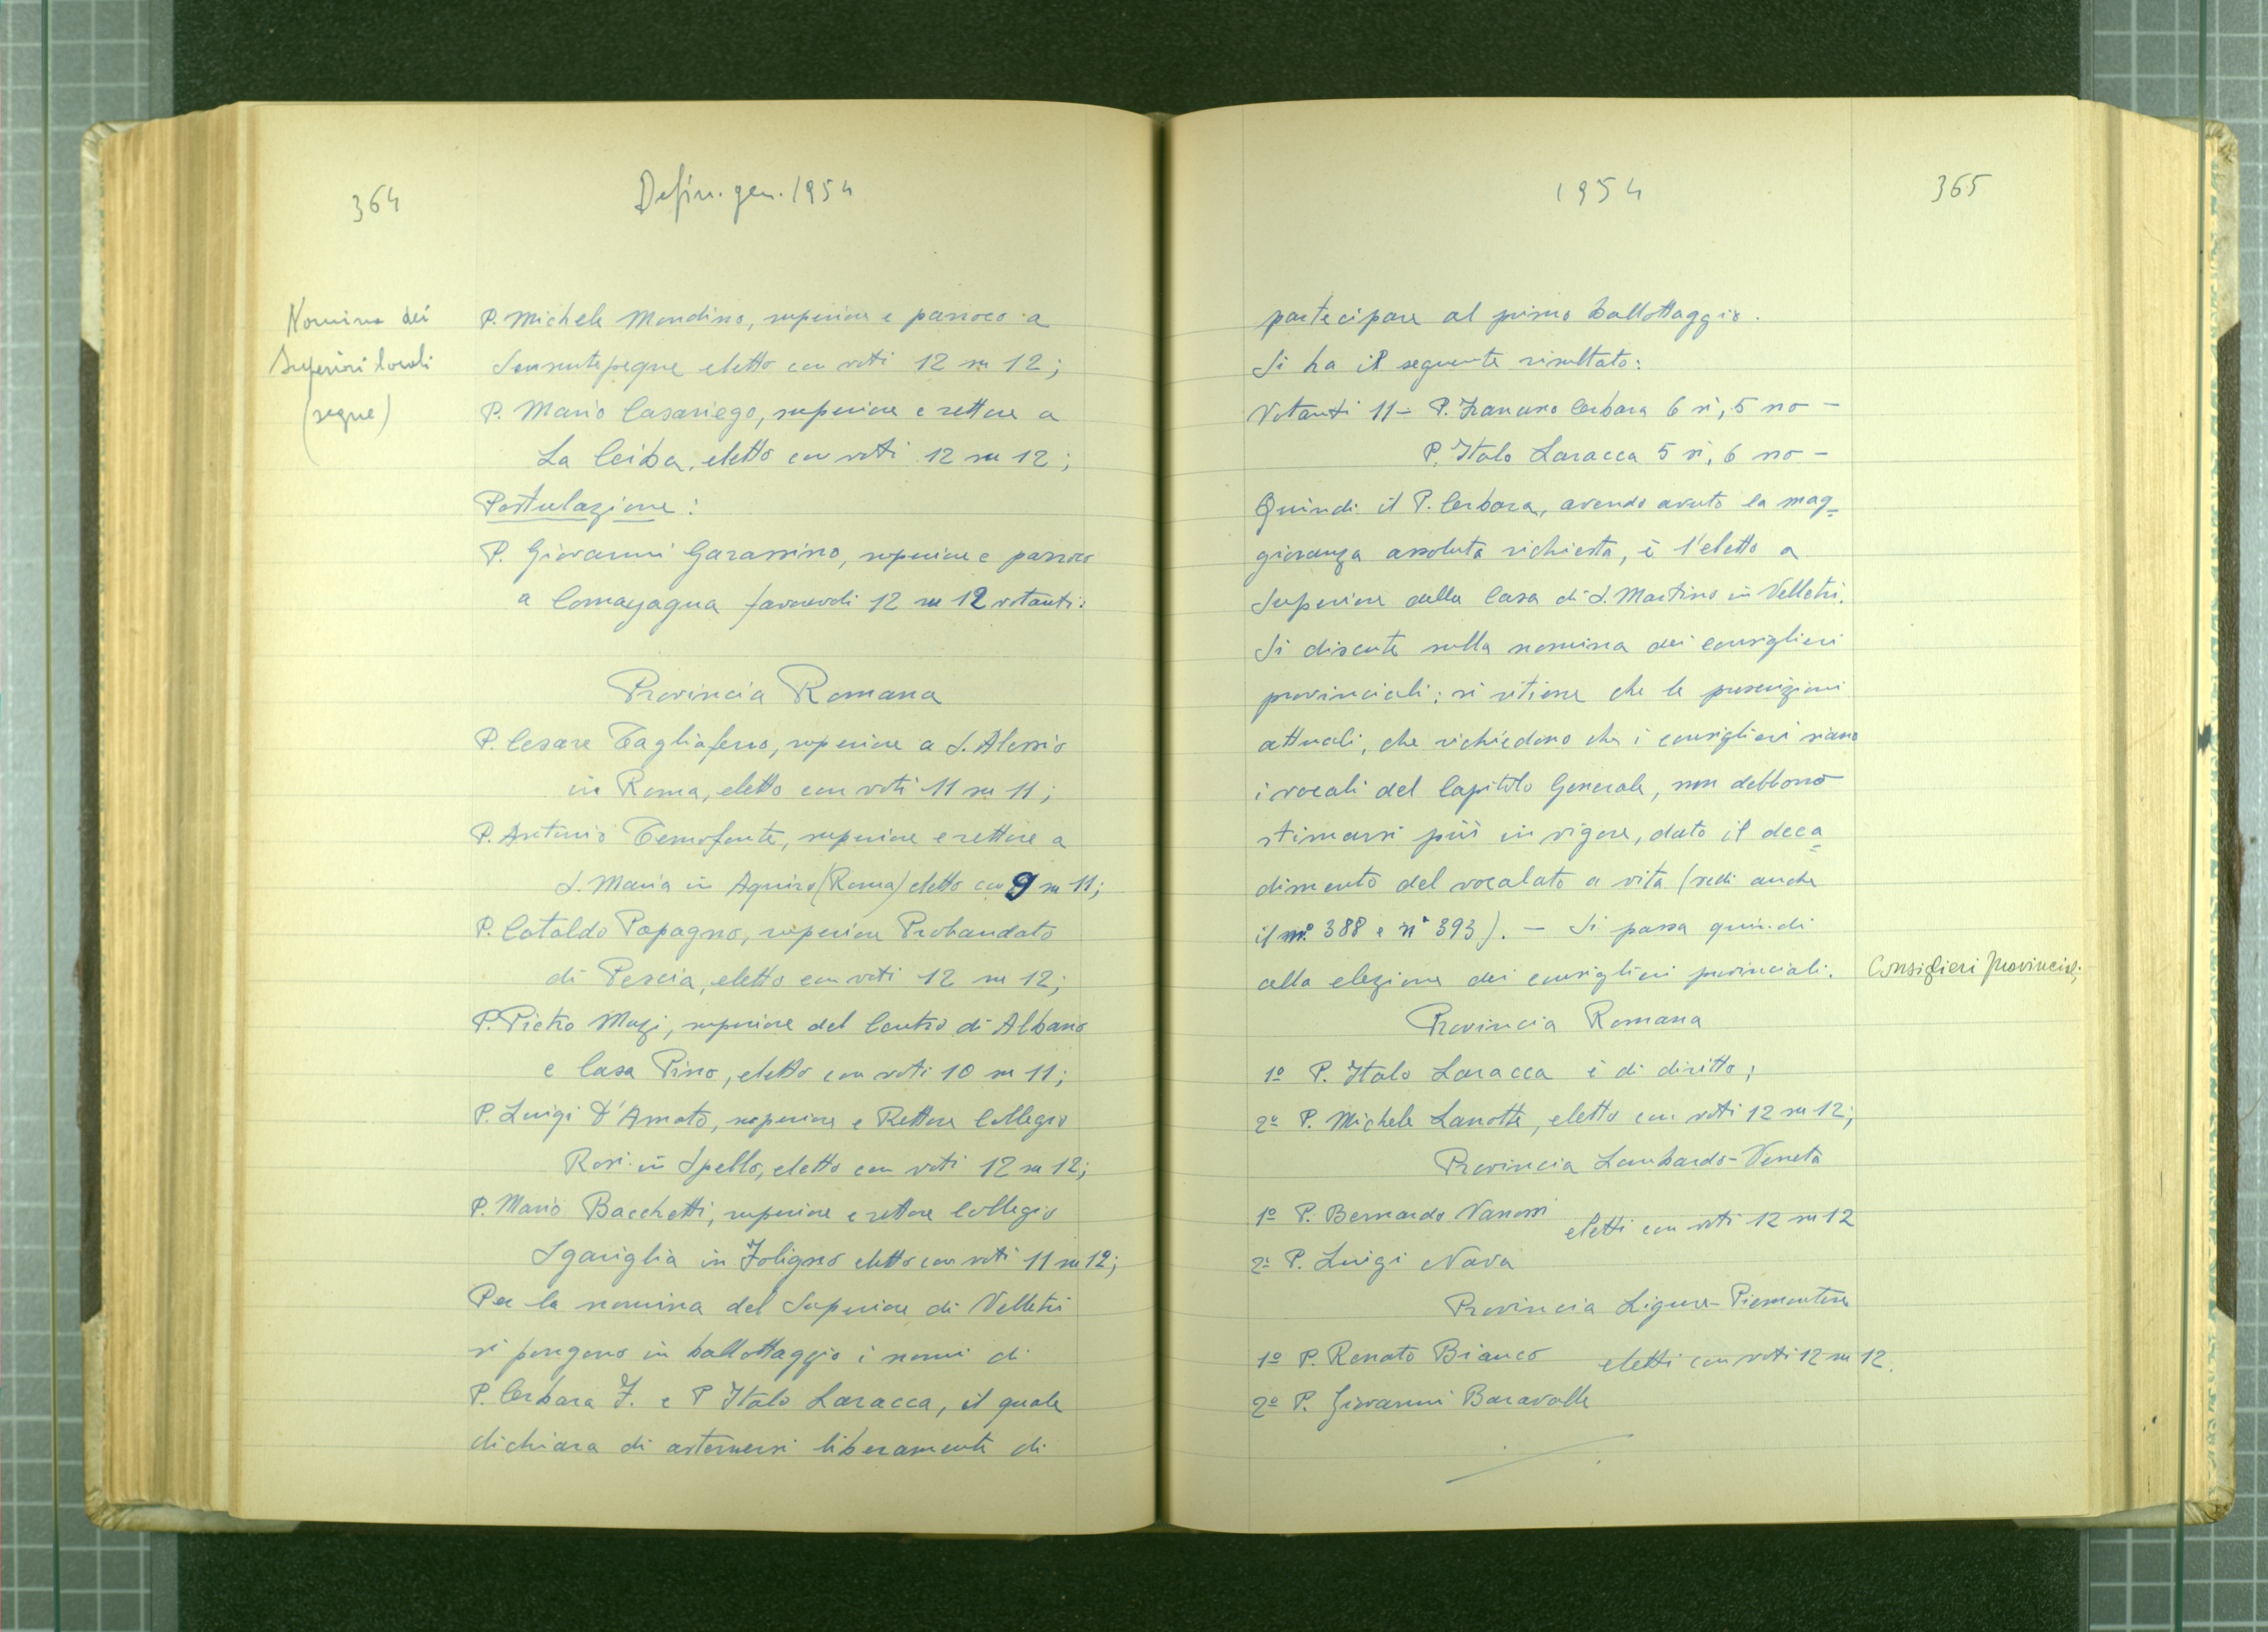 364
Defin. gen. 1954
Nomina dei
Superiori locali
(segue)
P. Michele Mondino, superiore e parroco a
Sensuntepeque eletto con voti 12 su 12;
P. Mario Casariego, superiore e rettore a
La Ceiba, eletto con voti 12 su 12;
Postulazione:
P. Giovanni Garassino, superiore e parroco
a Comayagua favorevoli 12 su 12 votanti.
Provincia Romana
P. Cesare Tagliaferro, superiore a S. Alessio
in Roma, eletto con voti 11 su 11;
P. Antonio Temofonte, superiore e rettore a
S. Maria in Aquiro (Roma) eletto con 9 su 11;
P. Cataldo Papagno, superiore Probandato
di Pescia, eletto con voti 12 su 12;
P. Pietro Mazi, superiore del Centro di Albano
e Casa Pino, eletto con voti 10 su 11;
P. Luigi D'Amato, superiore e Rettore Collegio
Rosi in Spello, eletto con voti 12 su 12;
P. Mario Bacchetti, superiore e rettore Collegio
Sgariglia in Foligno eletto con voti 11 su 12;
Per la nomina del Superiore di Velletri
si pongono in ballottaggio i nomi di
P. Cerbara F. e P Italo Laracca, il quale
dichiara di astenersi liberamente di
1954
365
partecipare al primo ballottaggio.
Si ha il seguente risultato:
Votanti 11 - P. Francesco Cerbara 6 sì, 5 no -
P. Italo Laracca 5 sì, 6 no -
Quindi il P. Cerbara, avendo avuto la mag=
gioranza assoluta richiesta, è l'eletto a
Superiore della Casa di S. Martino in Velletri.
Si discute sulla nomina dei consiglieri
provinciali: si ritiene che le prescrizioni
attuali, che richiedono che i consiglieri siano
i vocali del Capitolo Generale, non debbono
stimarsi più in vigore, dato il deca=
dimento del vocalato a vita (vedi anche
il n.° 388 e n° 393). - Si passa quindi
alla elezione dei consiglieri provinciali.
Consiglieri provinciali
Provincia Romana
1º P. Italo Laracca è di diritto;
2º P. Michele Lanotte, eletto con voti 12 su 12;
Provincia Lombardo-Veneta
1º P. Bernardo Vanossi
eletti con voti 12 su 12
2º P. Luigi Nava
Provincia Ligure-Piemontese
1º P. Renato Bianco
eletti con voti 12 su 12.
2º P. Giovanni Baravalle